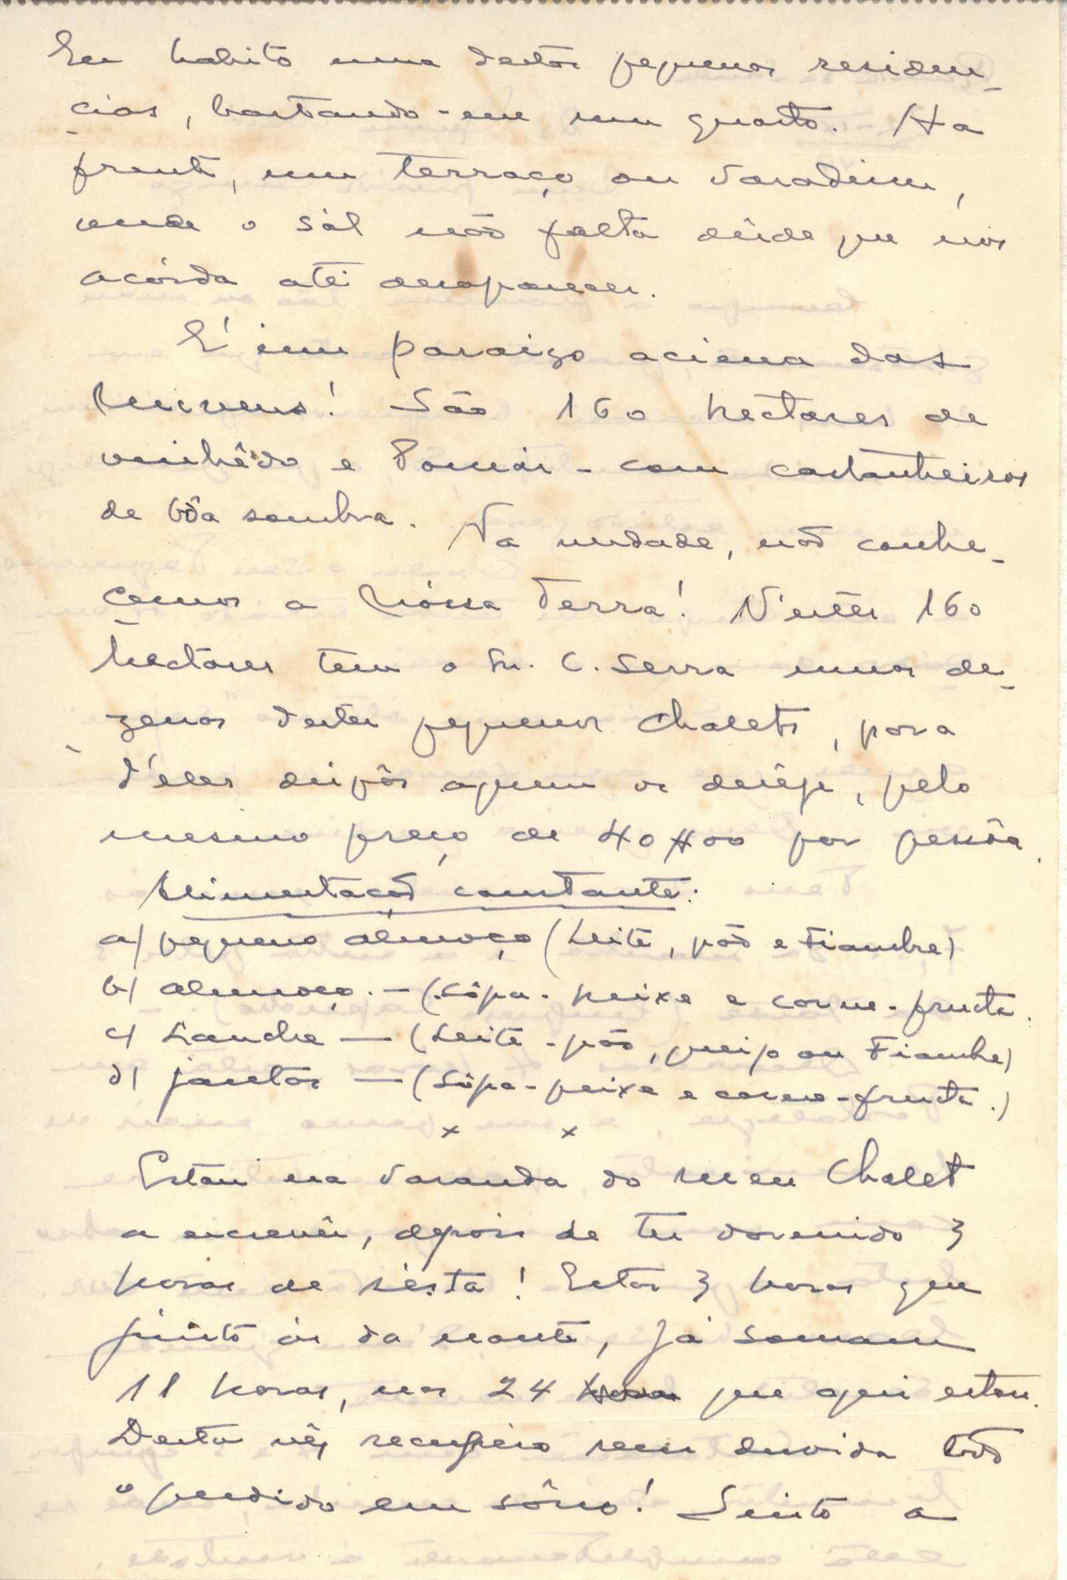 Eu habito uma destas pequenas residen-
cias, bastando-me um quarto. Na
frente, um terraço ou varadim,
onde o sól não falta dêsde que nos
acórda até desaparecer.
E' um paraizo acima das
Nuvens! São 160 hectares de
vinhêdo e Pomár - com castanheiros
de bôa sombra. Na verdade, não conhe-
cemos a Nóssa Terra! N'estes 160
hectares tem o Sr. C. Serra umas de-
zenas destes pequenos Chalets, para
d'eles dispôr a quem os desêje, pelo
mesmo preço de 40$00 por pessôa.
Alimentação constante:
a) pequeno almoço (Leite, pão e Fiambre)
b) almoço. — (Sôpa - peixe e carne - fructa.
c) Lanche — (Leite - pão, queijo ou Fiambre)
d) jantar — (Sôpa - peixe e carne - fructa.)
x x
Estou na varanda do meu Chalet
a escrevêr, depois de ter dormido 3
horas de sésta! Estas 3 horas que
junto ás da noute, já somam
11 horas, nas 24 que aqui estou.
Desta vêz recupéro sem duvida todo
o perdido em sôno! Sinto a